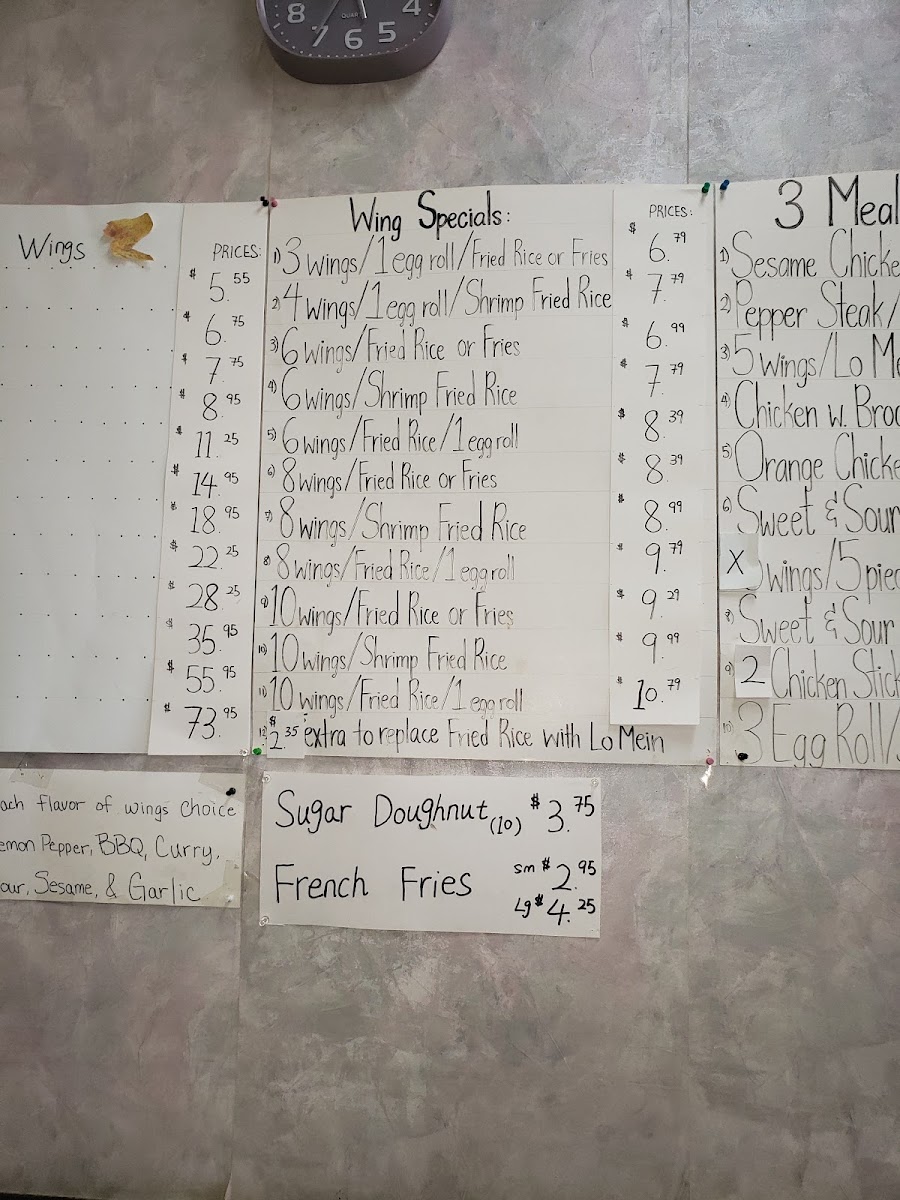 8 7 6 5 4
QUARTZ
Wings
PRICES:
$5.55
$6.75
$7.75
$8.95
$11.25
$14.95
$18.95
$22.25
$28.25
$35.95
$55.95
$73.95
Wing Specials:
PRICES:
1) 3 wings/1 egg roll/Fried Rice or Fries $6.79
2) 4 wings/1 egg roll/Shrimp Fried Rice $7.79
3) 6 wings/Fried Rice or Fries $6.99
4) 6 wings/Shrimp Fried Rice $7.79
5) 6 wings/Fried Rice/1 egg roll $8.39
6) 8 wings/Fried Rice or Fries $8.39
7) 8 wings/Shrimp Fried Rice $8.99
8) 8 wings/Fried Rice/1 egg roll $9.79
9) 10 wings/Fried Rice or Fries $9.29
10) 10 wings/Shrimp Fried Rice $9.99
11) 10 wings/Fried Rice/1 egg roll $10.79
12) $2.35 extra to replace Fried Rice with Lo Mein
3 Meal
1) Sesame Chicke
2) Pepper Steak/
3) 5 wings/Lo Me
4) Chicken w. Broc
5) Orange Chicke
6) Sweet & Sour
X wings/5 piec
8) Sweet & Sour
9) 2 Chicken Stick
10) 3 Egg Roll/
ach flavor of wings choice
emon Pepper, BBQ, Curry,
our, Sesame, & Garlic
Sugar Doughnut (10) $3.75
French Fries sm $2.95
Lg $4.25